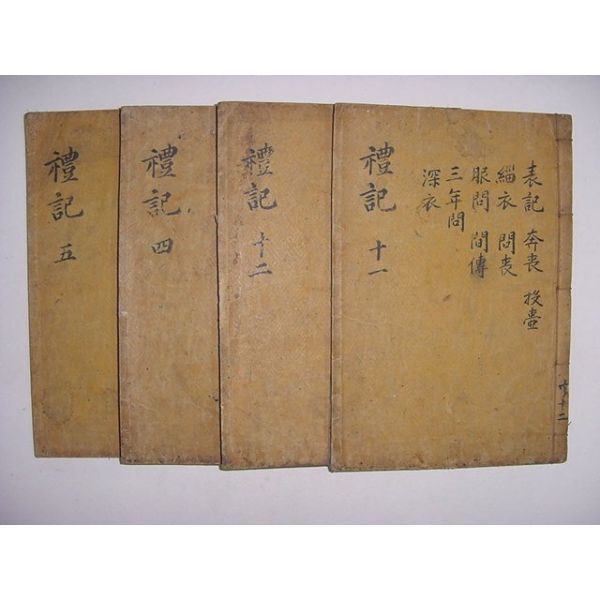 表記 奔喪 投壺
緇衣 問喪
服問 間傳
三年問
深衣
禮記 十一
禮記 十二
禮記 四
禮記 五